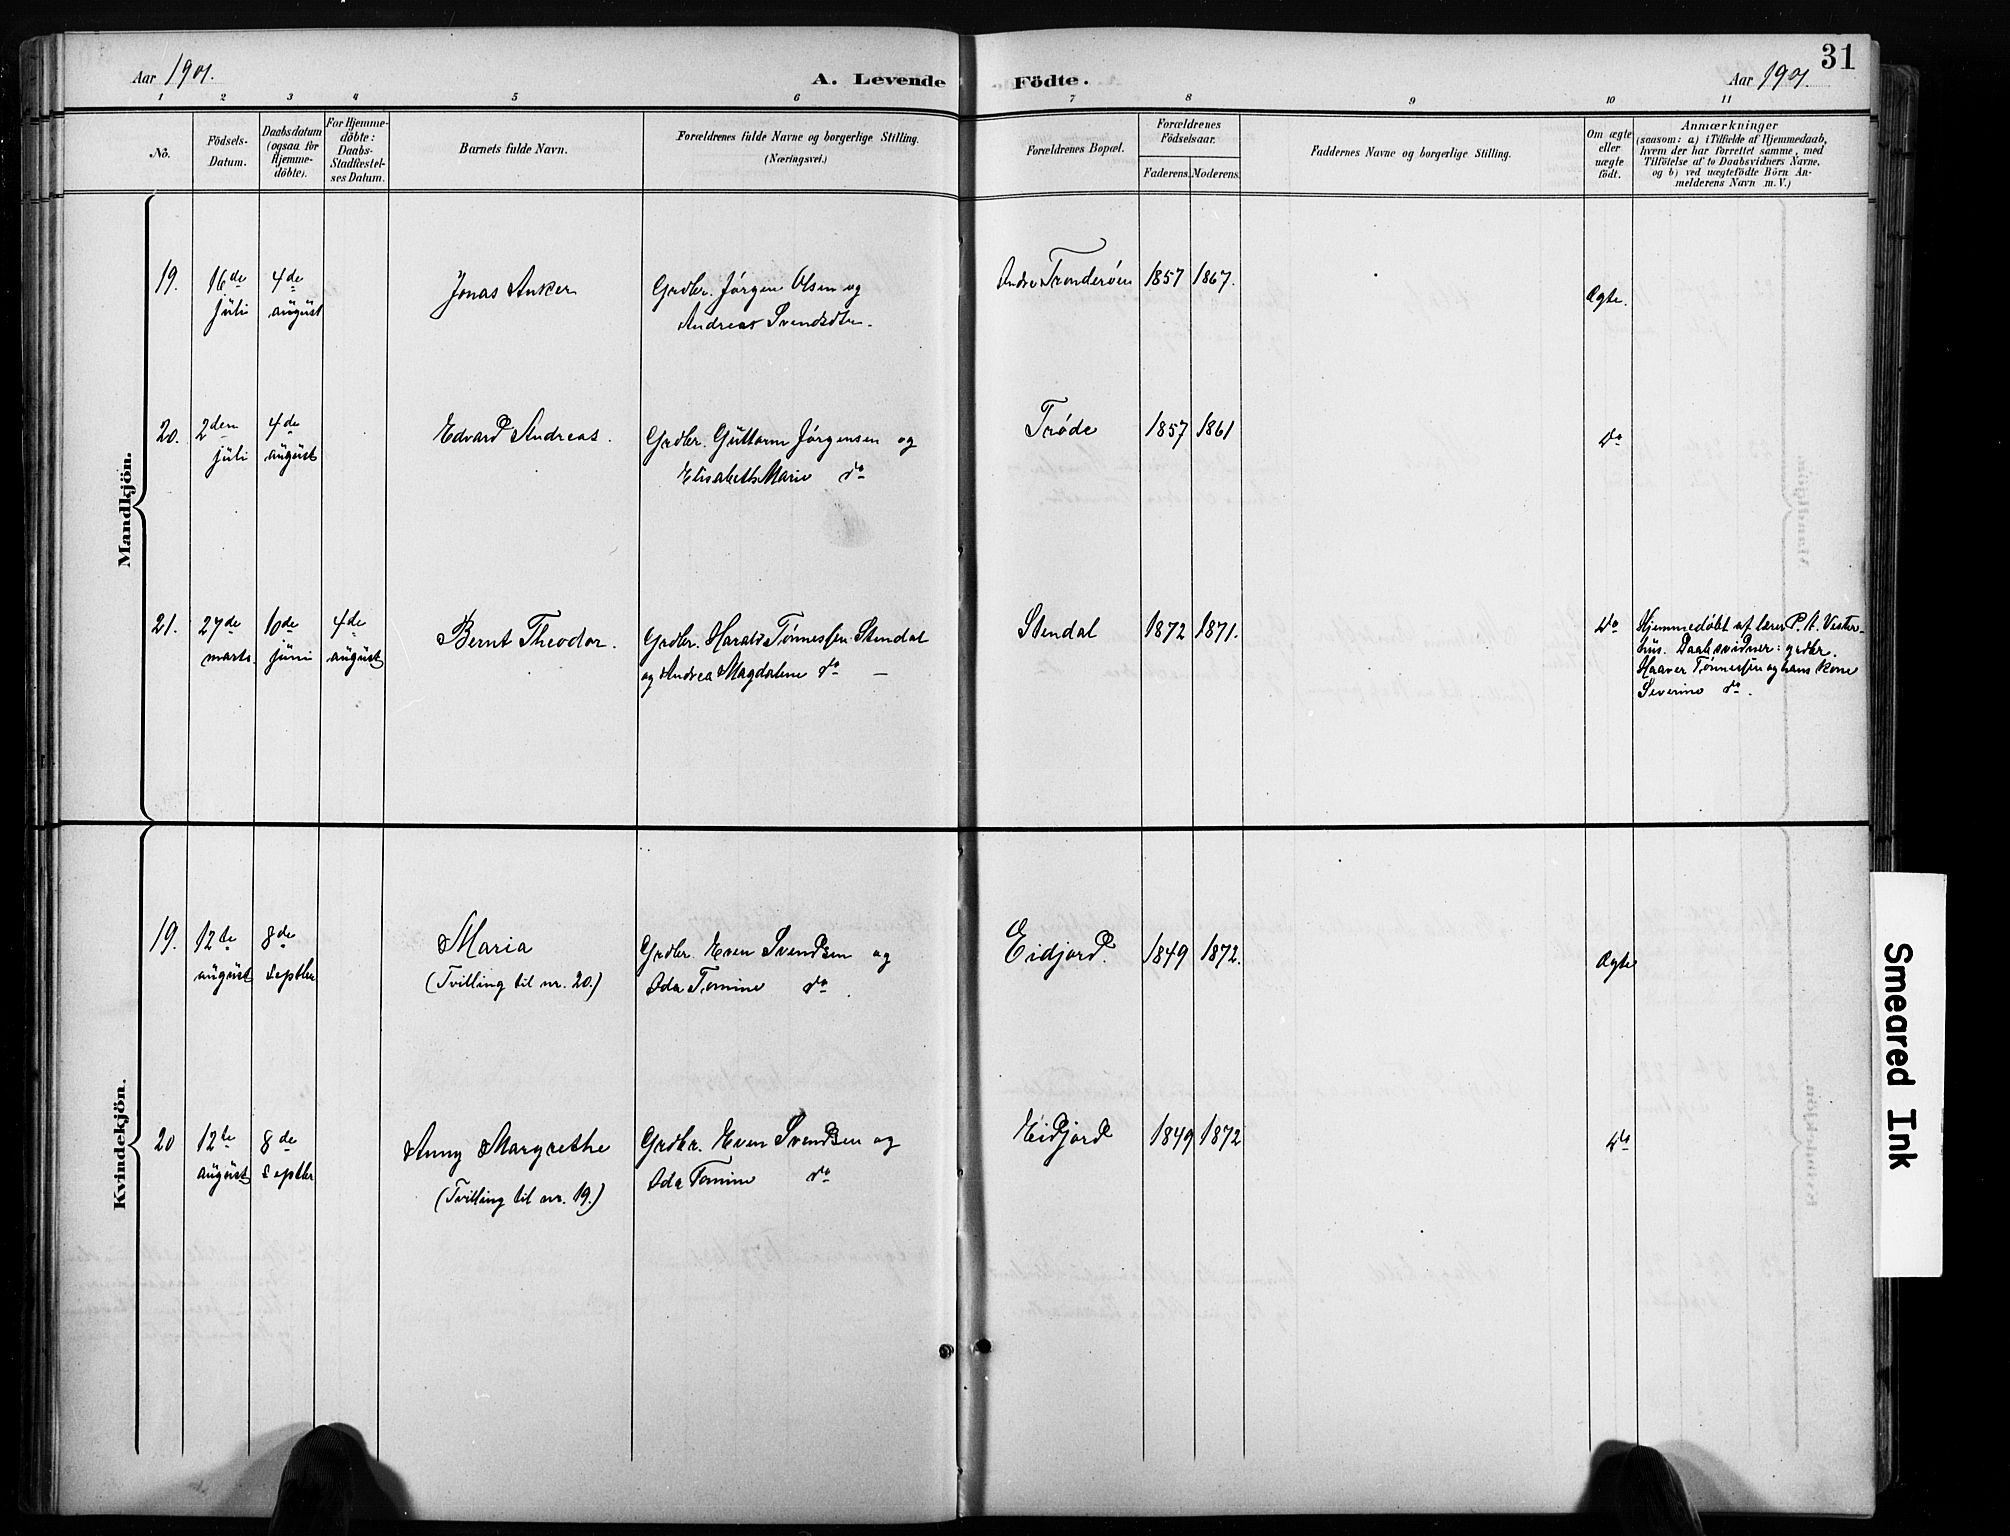 Aar 1901.
A. Levende Födte.
Aar 1901.
31
1 2 3 4 5 6 7 8 9 10 11
No.
Födsels-
Datum.
Daabsdatum
(ogsaa for
Hjemme-
döbte).
For Hjemme-
döbte:
Daabs-
Stadfæstel-
ses Datum.
Barnets fulde Navn.
Forældrenes fulde Navne og borgerlige Stilling.
(Næringsvei.)
Forældrenes Bopæl.
Forældrenes
Födselsaar.
Faderens. Moderens.
Faddernes Navne og borgerlige Stilling.
Om ægte
eller
uægte
födt.
Anmærkninger
(saasom: a) i Tilfælde af Hjemmedaab,
hvem der har forrettet samme, med
Tilföielse af to Daabsvidners Navne,
og b) ved uægtefödte Börn An-
melderens Navn m. V.)
Mandkjön.
19. 16de 4de Jonas Anker Grdbr. Jørgen Olsen og Andre Tronderöen 1857 1867. Ægte.
juli august Andreas Svendsdtr.
20. 2den 4de Edvard Andreas. Grdbr. Guttorm Jørgensen og Trøde 1857 1861 do
juli august Elisabeth Marie do
21. 27de 10de 4de Bernt Theodor. Grdbr. Harald Tønnessen Stendal Stendal 1872 1871. do Hjemmedøbt af lærer P. A. Vester-
marts. juni august og Andrea Magdalene do — hus. Daabsvidner: grdbr.
Haaver Tønnessen og hans kone
Severine do.
Kvindekjön.
19. 12te 8de Maria Grdbr. Even Svendsen og Eidjord. 1849 1872. Ægte
august Septbr (Tvilling til nr. 20.) Oda Tomine do.
20 12te 8de Anny Margrethe Grdbr. Even Svendsen og Eidjord 1849 1872 do
august Septbr (Tvilling til nr. 19.) Oda Tomine do
Smeared Ink